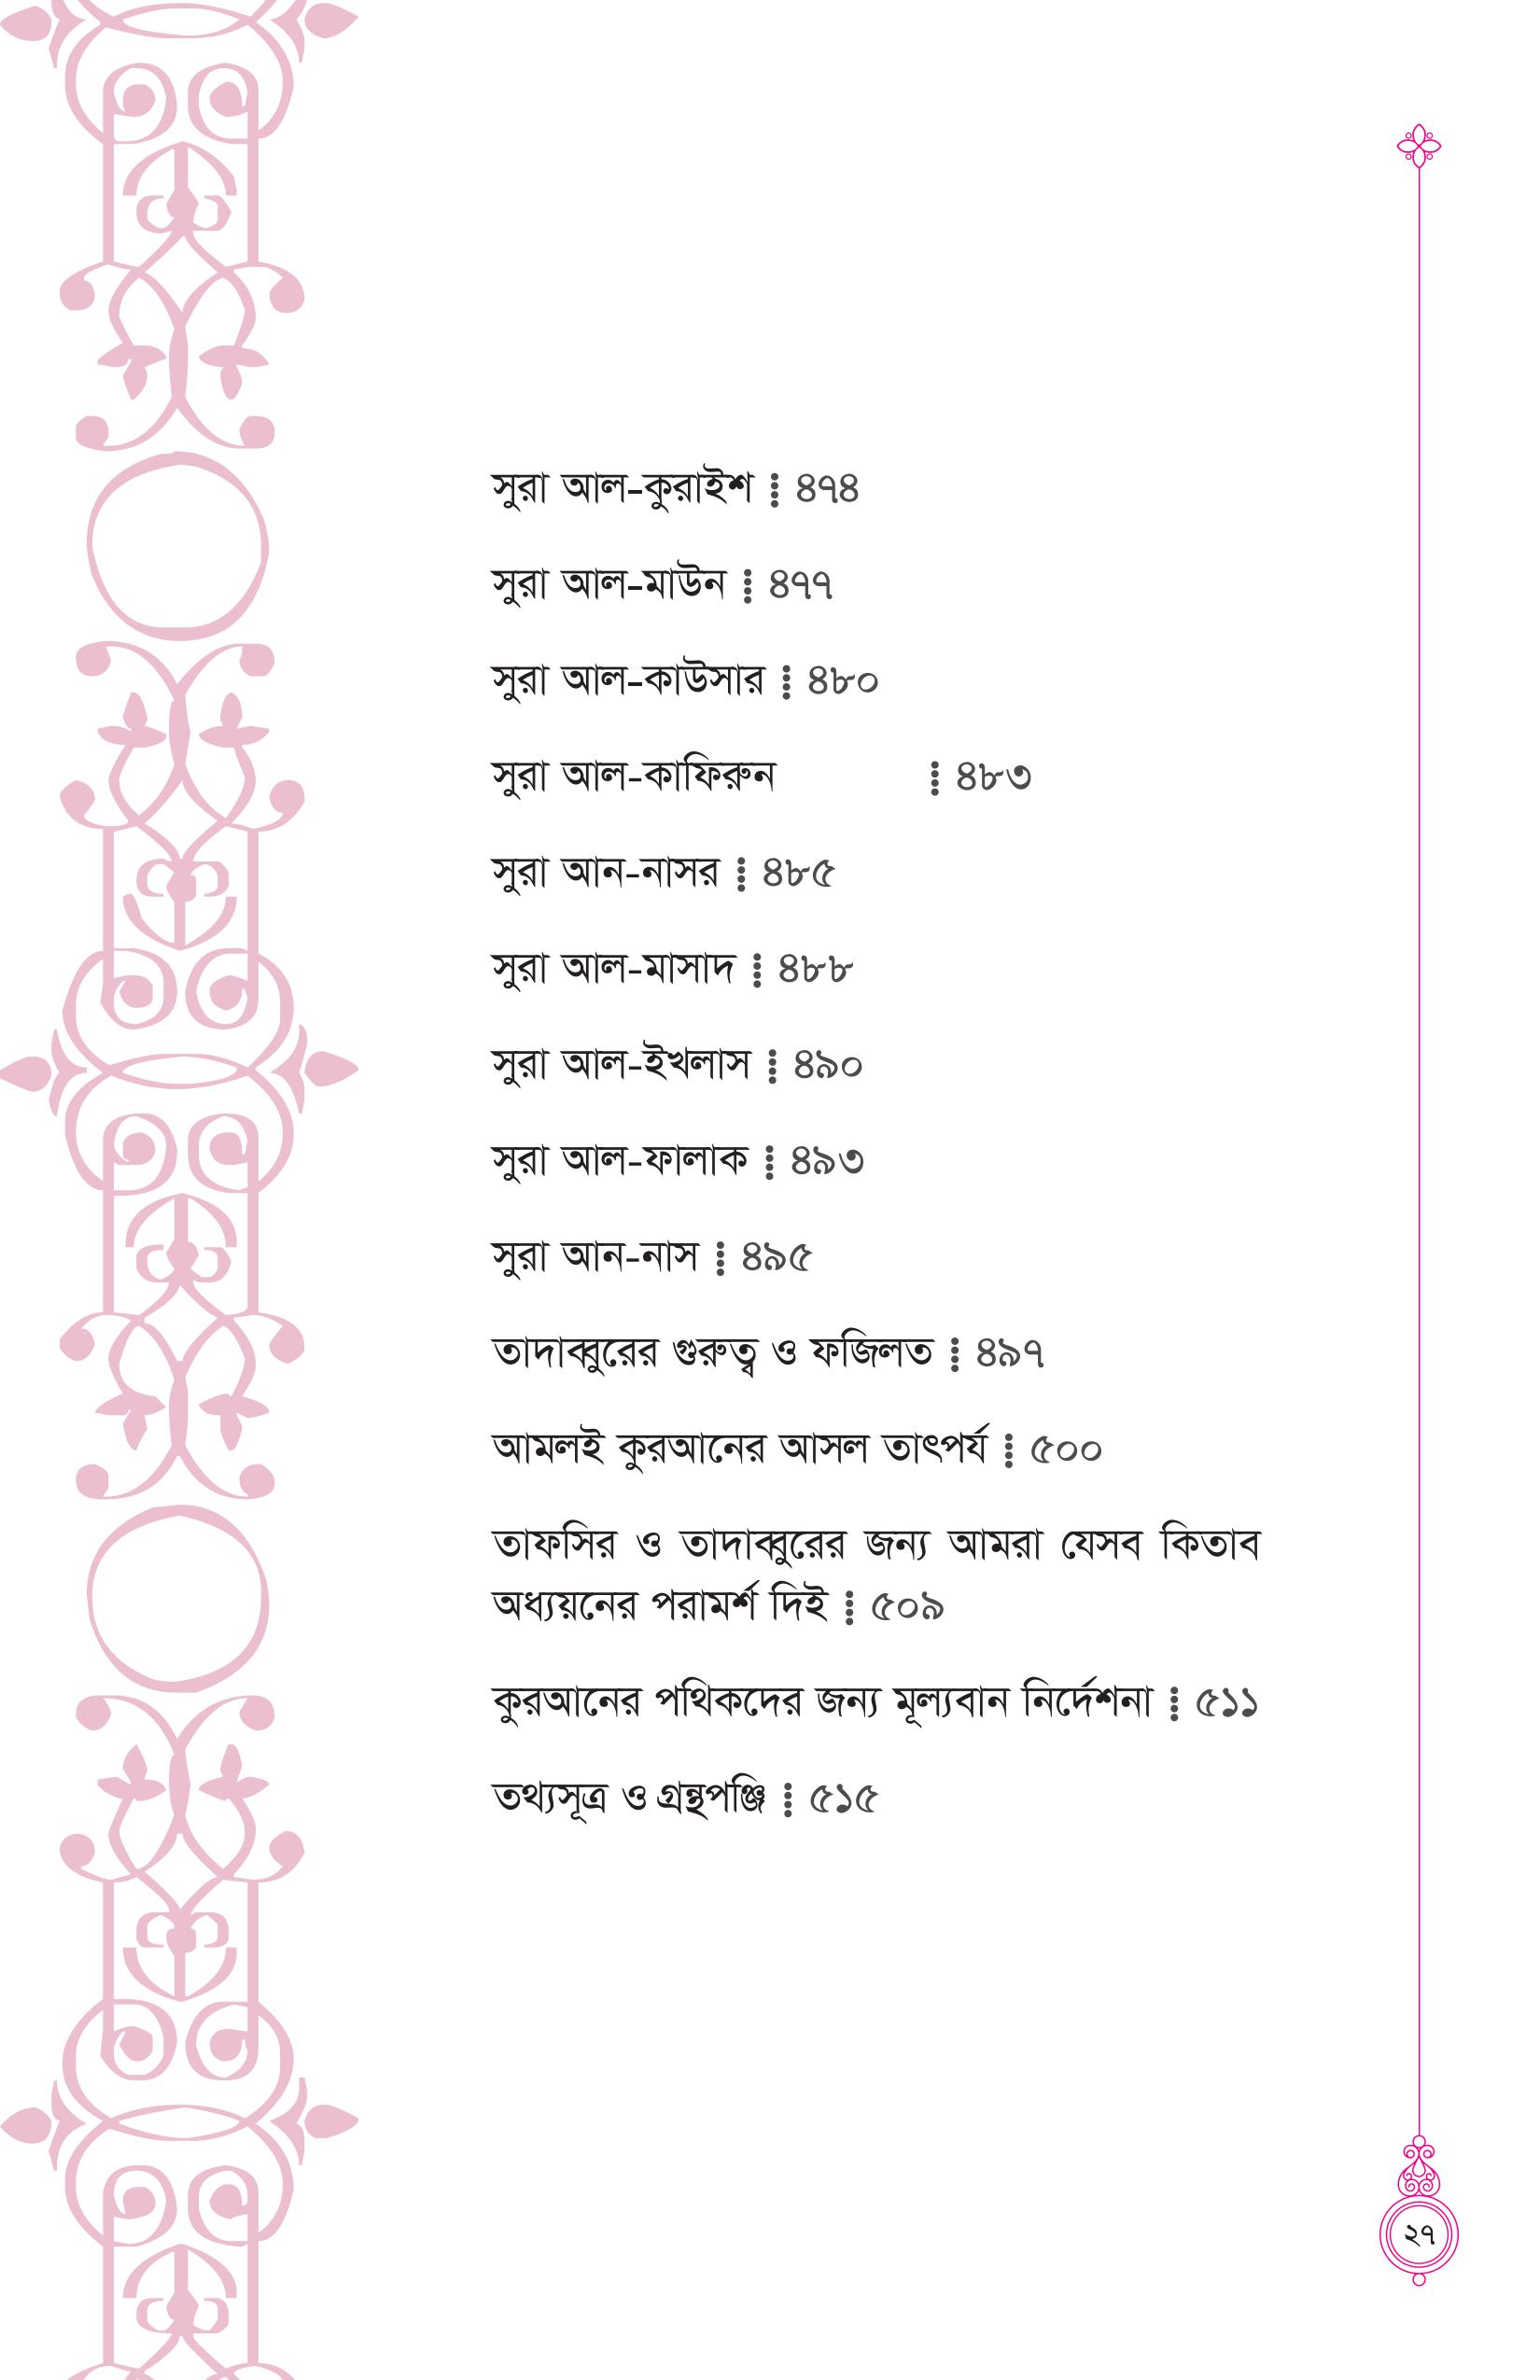 সুরা আল-কুরাইশ ⁞ ৪৭৪
সুরা আল-মাউন ⁞ ৪৭৭
সুরা আল-কাউসার ⁞ ৪৮০
সুরা আল-কাফিরুন ⁞ ৪৮৩
সুরা আন-নাসর ⁞ ৪৮৫
সুরা আল-মাসাদ ⁞ ৪৮৮
সুরা আল-ইখলাস ⁞ ৪৯০
সুরা আল-ফালাক ⁞ ৪৯৩
সুরা আন-নাস ⁞ ৪৯৫
তাদাব্বুরের গুরুত্ব ও ফজিলত ⁞ ৪৯৭
আমলই কুরআনের আসল তাৎপর্য ⁞ ৫০০
তাফসির ও তাদাব্বুরের জন্য আমরা যেসব কিতাব
অধ্যয়নের পরামর্শ দিই ⁞ ৫০৯
কুরআনের পথিকদের জন্য মূল্যবান নির্দেশনা ⁞ ৫১১
তথ্যসূত্র ও গ্রন্থপঞ্জি ⁞ ৫১৫
২৭